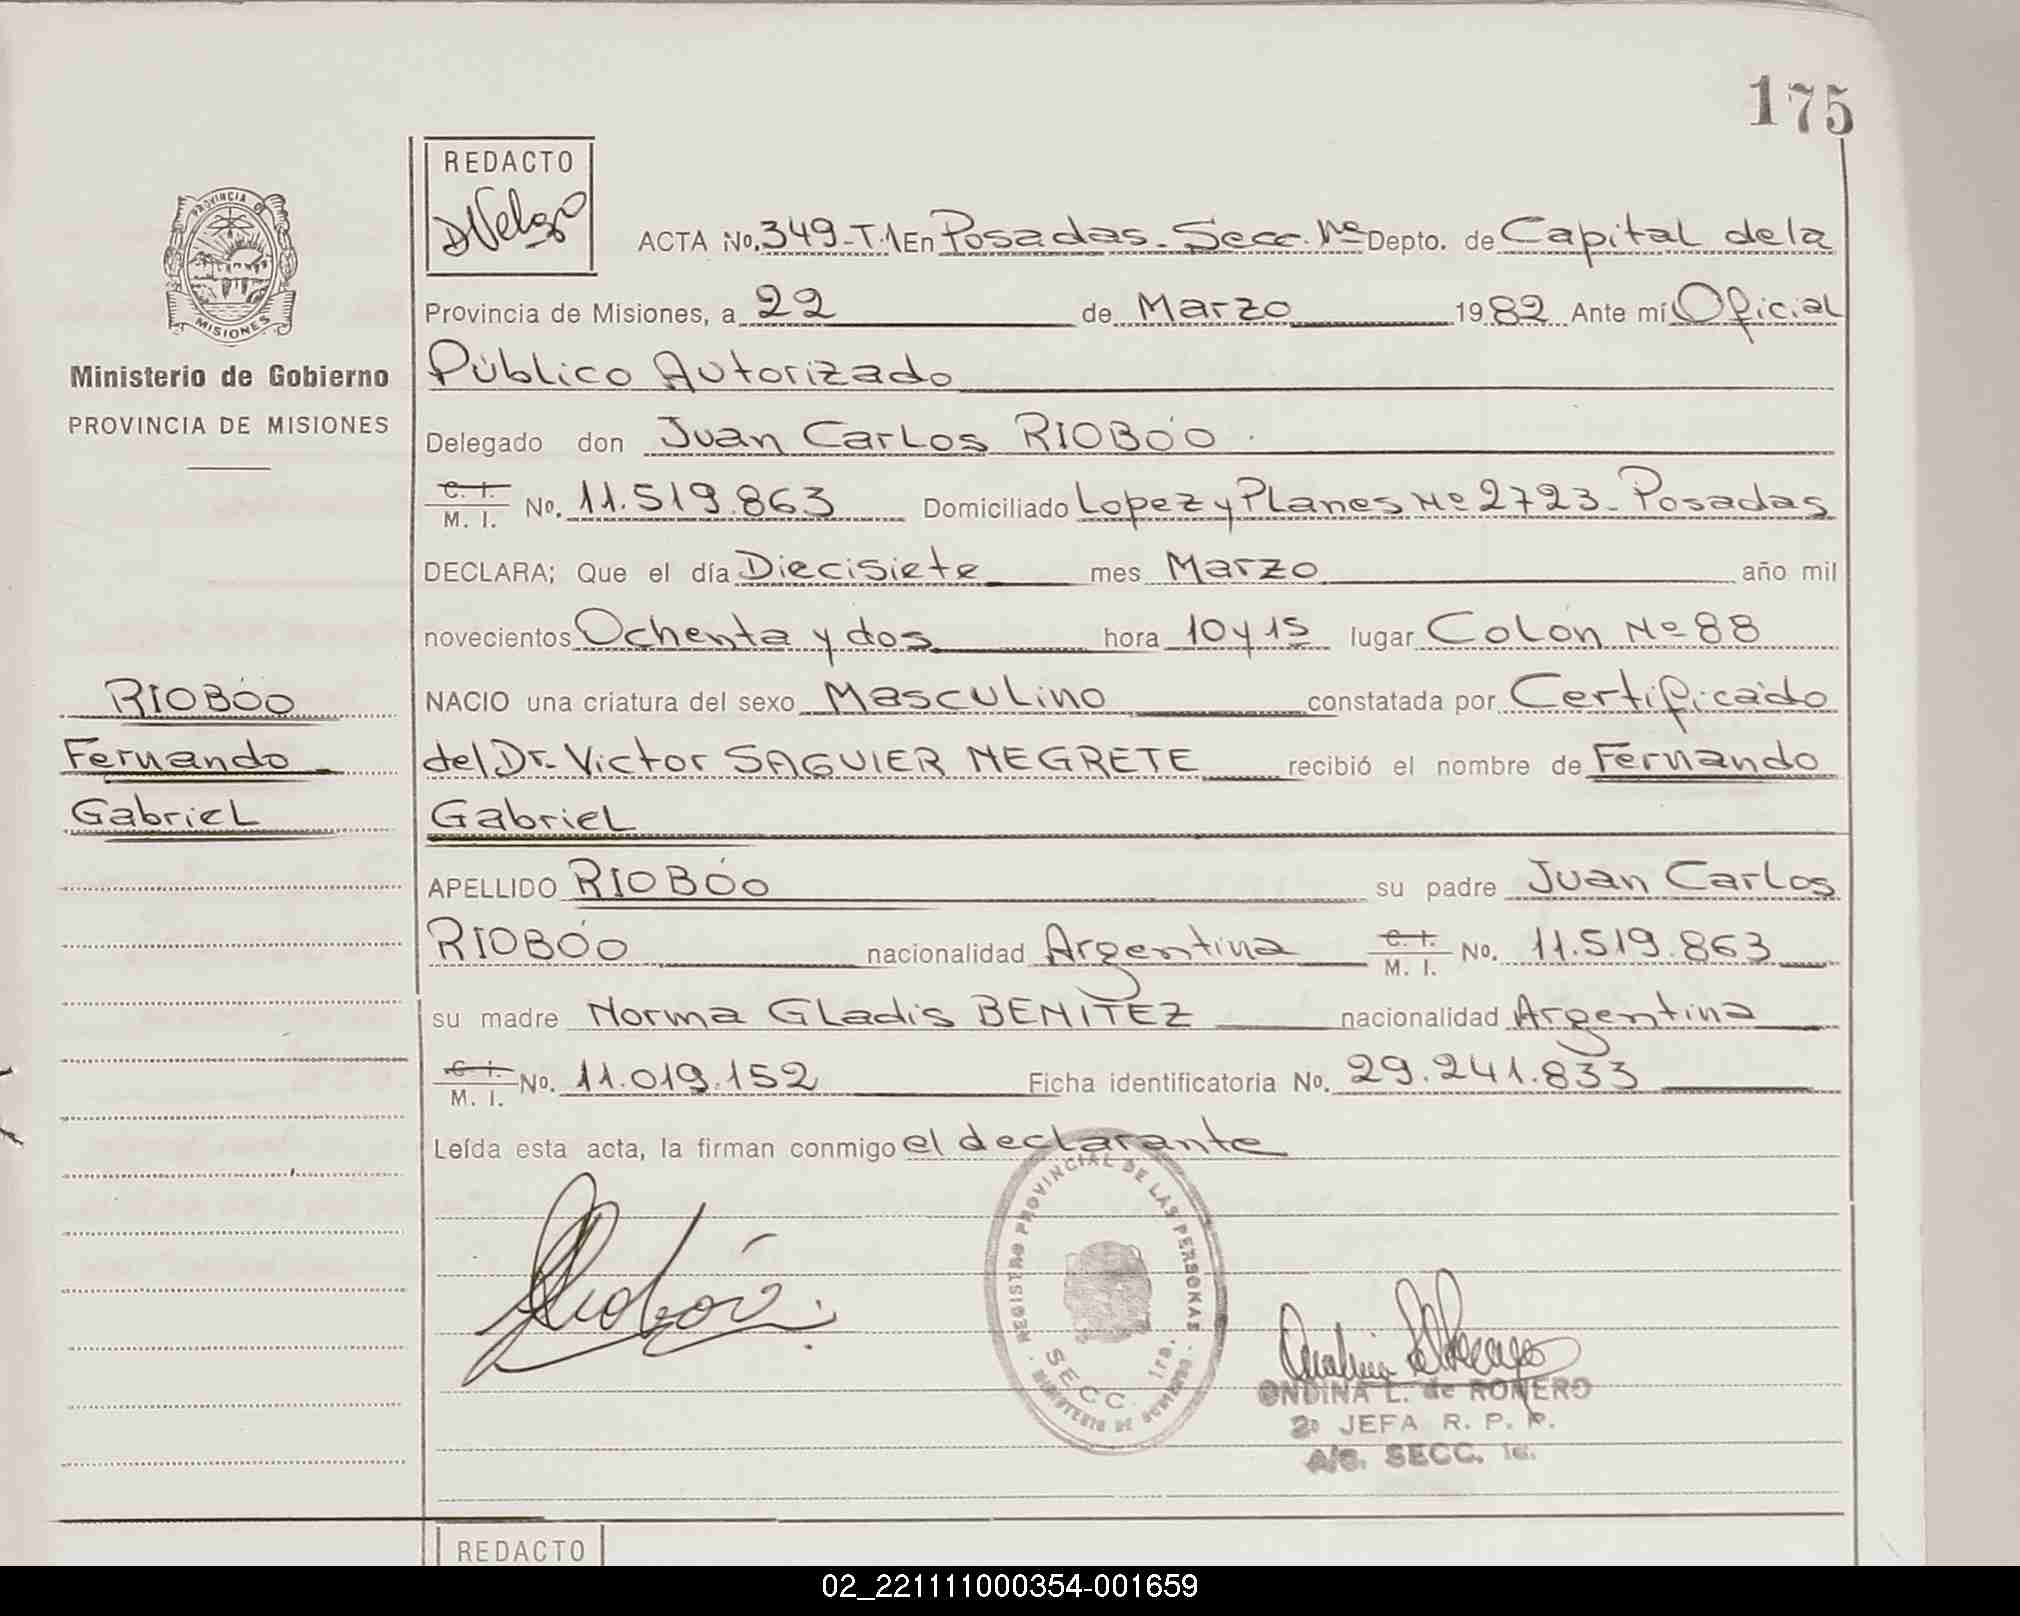 175
REDACTO
PROVINCIA DE
MISIONES
Ministerio de Gobierno
PROVINCIA DE MISIONES
RIOBÓO
Fernando
Gabriel
ACTA No. 349-T.1 En Posadas-Secc. 1ra Depto. de Capital de la
Provincia de Misiones, a 22 de Marzo 1982 Ante mí Oficial
Público Autorizado
Delegado don Juan Carlos RIOBÓO.
C. I. M. I. No. 11.519.863 Domiciliado Lopez y Planes Nº 2723-Posadas
DECLARA; Que el día Diecisiete mes Marzo año mil
novecientos Ochenta y dos hora 10 y 15 lugar Colón Nº 88
NACIO una criatura del sexo Masculino constatada por Certificado
del Dr. Victor SAGUIER NEGRETE recibió el nombre de Fernando
Gabriel
APELLIDO RIOBÓO su padre Juan Carlos
RIOBÓO nacionalidad Argentina C. I. M. I. No. 11.519.863
su madre Norma Gladis BENITEZ nacionalidad Argentina
C. I. M. I. No. 11.019.152 Ficha identificatoria No. 29.241.833
Leída esta acta, la firman conmigo el declarante
REGISTRO PROVINCIAL DE LAS PERSONAS
SECC. 1ra.
MINISTERIO DE GOBIERNO
ONDINA L. de ROMERO
2º JEFA R. P. P.
A/C. SECC. 1ª.
REDACTO
02_221111000354-001659